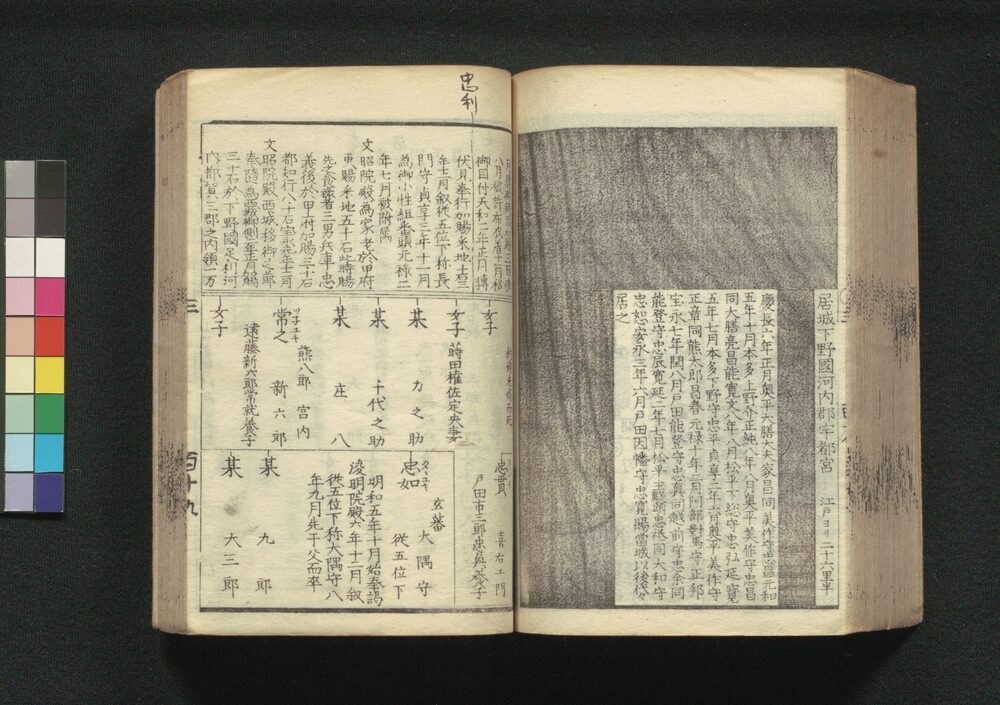 居城下野國河内郡宇都宮 江戸ヨリ二十六里半
慶長六年正月奥平大膳大夫家昌同美作守忠昌元和
五年十月本多上野介正純八年八月奥平美作守忠昌
同大膳亮昌能寛文八年八月松平下総守忠弘延寶
五年七月本多下野守忠平貞享二年六月奥平美作守
正章同熊太郎昌春元禄十年二月阿部對馬守正邦
宝永七年閏八月戸田能登守忠真同越前守忠余同
能登守忠辰寛延二年七月松平主殿頭忠祗同大和守
忠恕安永三年六月戸田因幡守忠寛賜當城以後代々
居之
忠利
八月被許布衣應十二月移
御目付天和二年正月轉
伏見奉行加賜米地
年十二月叙従五位下称長
門守貞享三年十一月
為御小性組番頭元禄二
年七月被附属
文昭院殿為家老於甲府
更賜米地五千石此時賜
先之食禄者三男兵庫忠
義後於甲府加賜三千石
都知行八千石宝永元年十二月
文昭院殿西城移御之節
奉隨為西城御側二年正月賜
三千石於下野國足利河
内都賀三郡之内領一万
女子
女子 蒔田権佐定央妻
某 力之助
某 千代之助
某 庄八
常之 ツネユキ 熊八郎 宮内
新六郎
遠藤新六郎常就養子
女子
忠貫 喜右エ門
戸田市三郎忠興養子
忠如 玄蕃 大隅守
従五位下
明和五年十月始奉謁
浚明院殿六年十二月叙
従五位下称大隅守八
年九月先于父而卒
某 九郎
某 大三郎
三 百十九